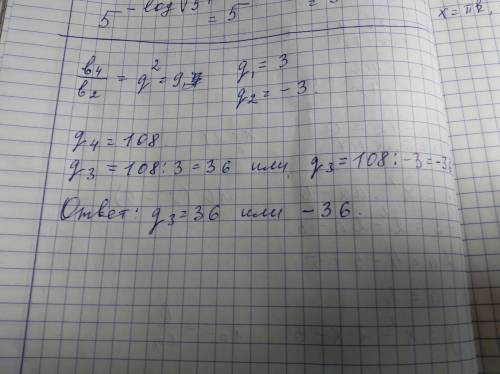 5 - log √5 = 5
x = πk
b₄/b₂ = q² = 9, q₁ = 3
q₂ = -3
q₄ = 108
q₃ = 108 : 3 = 36 или q₃ = 108 : -3 = -36
Ответ: q₃ = 36 или - 36.